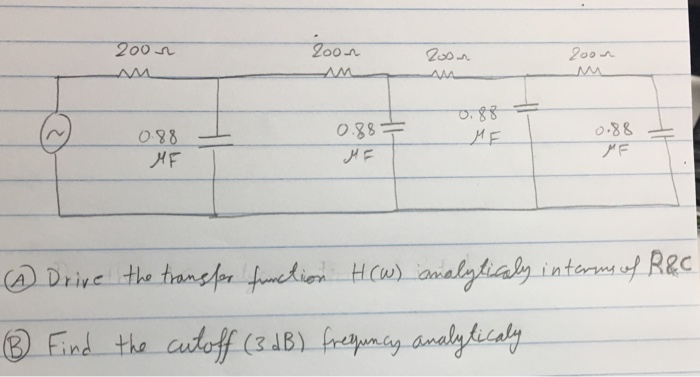 200Ω 200Ω 200Ω 200Ω
0.88 μF 0.88 μF 0.88 μF 0.88 μF
~
(A) Drive the transfer function H(ω) analyticaly interms of R&C
(B) Find the cutoff (3 dB) frequncy analyticaly